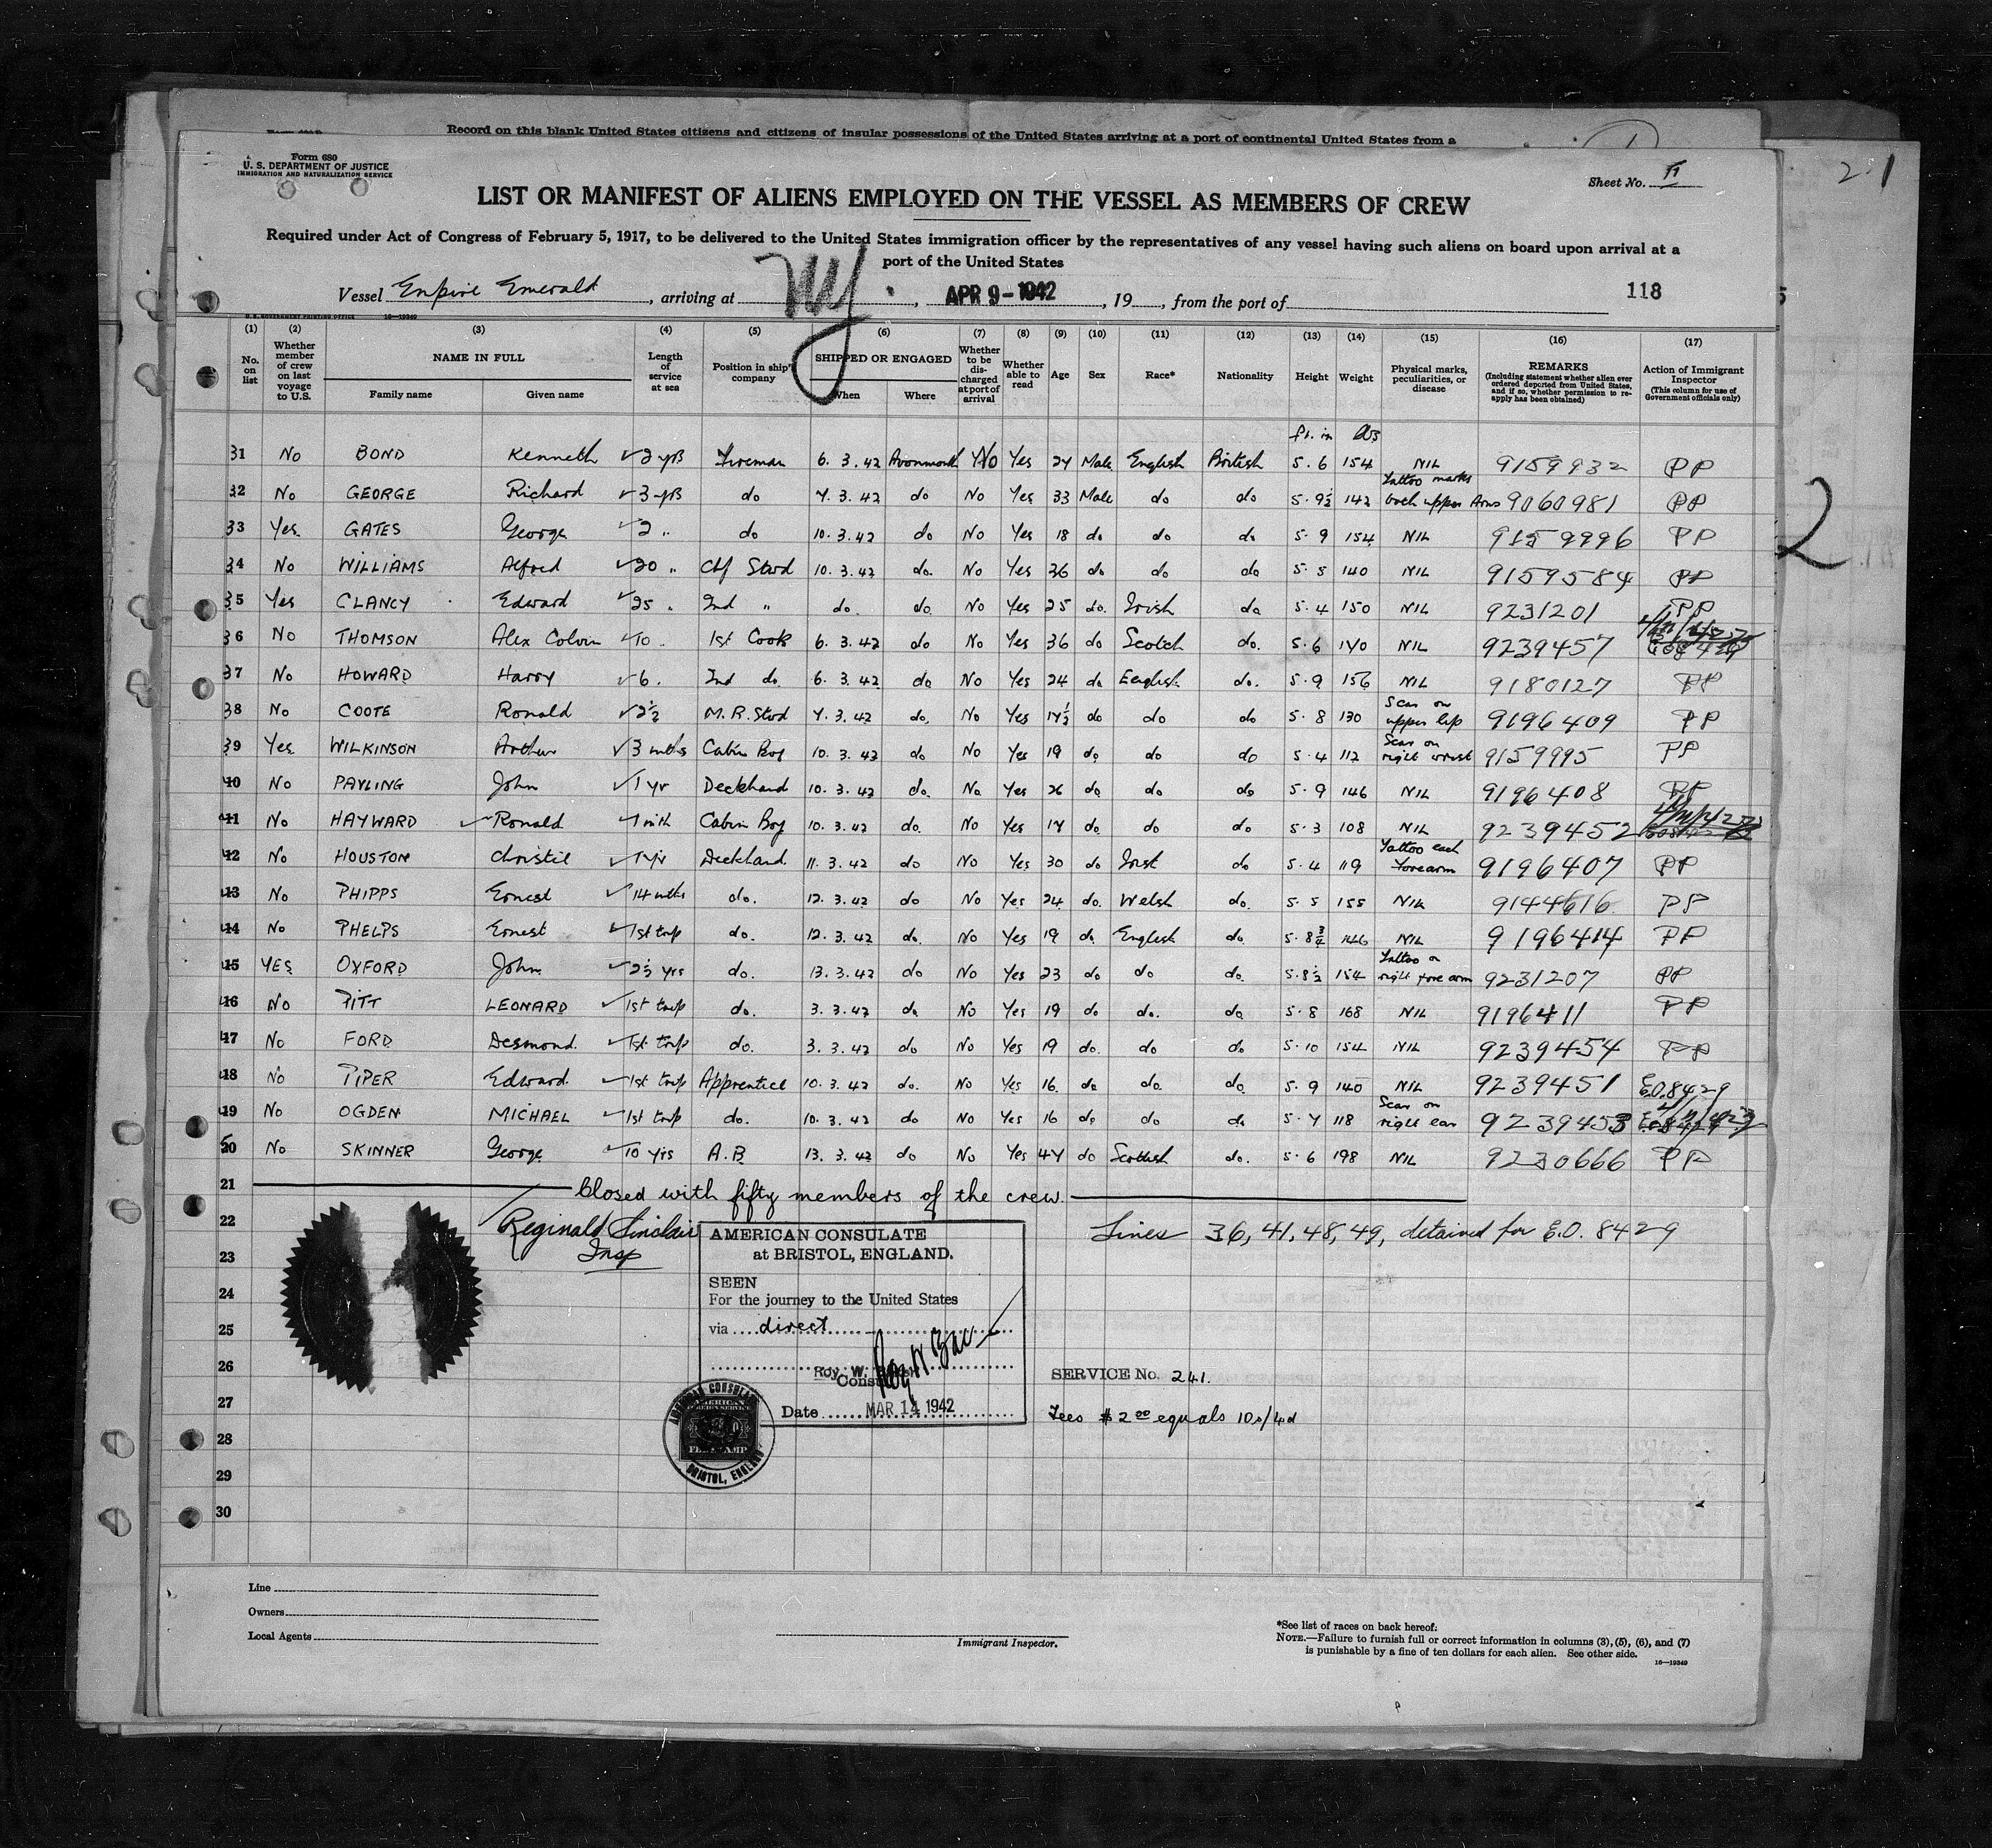 Record on this blank United States citizens and citizens of insular possessions of the United States arriving at a port of continental United States from a
2.1
Form 680
U. S. DEPARTMENT OF JUSTICE
IMMIGRATION AND NATURALIZATION SERVICE
Sheet No. II
LIST OR MANIFEST OF ALIENS EMPLOYED ON THE VESSEL AS MEMBERS OF CREW
Required under Act of Congress of February 5, 1917, to be delivered to the United States immigration officer by the representatives of any vessel having such aliens on board upon arrival at a
port of the United States
Vessel Empire Emerald, arriving at NY, APR 9 - 1942, 19__, from the port of
118
U. S. GOVERNMENT PRINTING OFFICE 16—19349
(1) (2) (3) (4) (5) (6) (7) (8) (9) (10) (11) (12) (13) (14) (15) (16) (17)
No. on list
Whether member of crew on last voyage to U.S.
NAME IN FULL
Family name
Given name
Length of service at sea
Position in ship's company
SHIPPED OR ENGAGED
When
Where
Whether to be discharged at port of arrival
Whether able to read
Age
Sex
Race*
Nationality
Height
Weight
Physical marks, peculiarities, or disease
REMARKS
(Including statement whether alien ever ordered deported from United States, and if so, whether permission to reapply has been obtained)
Action of Immigrant Inspector
(This column for use of Government officials only)
ft. in lbs
31 No BOND Kenneth ✓2 yrs Fireman 6.3.42 Avonmouth No Yes 24 Male English British 5.6 154 NIL 9159932 PP
32 No GEORGE Richard ✓3 yrs do 7.3.42 do No Yes 33 Male do do 5.9½ 142 Tattoo marks both upper Arms 9060981 PP
33 Yes GATES George ✓2 " do 10.3.42 do No Yes 18 do do do 5.9 154 NIL 9159996 PP
34 No WILLIAMS Alfred ✓20 " Chf Stwd 10.3.42 do. No Yes 36 do do do 5.5 140 NIL 9159584 PP
35 Yes CLANCY Edward ✓25 " 2nd " do. do. No Yes 25 do. Irish do 5.4 150 NIL 9231201 PP
36 No THOMSON Alex Colvin ✓10 " 1st Cook 6.3.42 do No Yes 36 do Scotch do. 5.6 140 NIL 9239457
37 No HOWARD Harry ✓6. 2nd do. 6.3.42 do No Yes 24 do English do. 5.9 156 NIL 9180127 PP
38 No COOTE Ronald ✓2½ M.R. Stwd 7.3.42 do. No Yes 17½ do do do 5.8 130 Scar on upper lip 9196409 PP
39 Yes WILKINSON Arthur ✓3 mths Cabin Boy 10.3.42 do No Yes 19 do do do 5.4 112 Scar on right wrist 9159995 PP
40 No PAYLING John ✓1 yr Deckhand 10.3.42 do. No Yes 26 do do do 5.9 146 NIL 9196408 PP
41 No HAYWARD ✓Ronald 1 mth Cabin Boy 10.3.42 do. No Yes 17 do do do 5.3 108 NIL 9239452
42 No HOUSTON Christie ✓1 yr Deckhand 11.3.42 do No Yes 30 do Irish do 5.4 119 Tattoo each forearm 9196407 PP
43 No PHIPPS Ernest ✓14 mths do. 12.3.42 do No Yes 24 do. Welsh do. 5.5 155 NIL 9144616 PP
44 No PHELPS Ernest ✓1st trip do. 12.3.42 do. No Yes 19 do English do. 5.8¾ 146 NIL 9196414 PP
45 YES OXFORD John ✓2½ yrs do. 13.3.42 do No Yes 23 do do do. 5.8½ 154 Tattoo on right fore arm 9231207 PP
46 No PITT LEONARD ✓1st trip do. 3.3.42 do No Yes 19 do do. do 5.8 168 NIL 9196411 PP
47 No FORD Desmond. ✓1st trip do. 3.3.42 do No Yes 19 do. do do 5.10 154 NIL 9239454 PP
48 No PIPER Edward. ✓1st trip Apprentice 10.3.42 do. No Yes 16. do do. do. 5.9 140 NIL 9239451 E.O.8429
49 No OGDEN MICHAEL ✓1st trip do. 10.3.42 do No Yes 16 do do do 5.7 118 Scar on right ear 9239453
50 No SKINNER George ✓10 yrs A.B 13.3.42 do No Yes 47 do Scottish do. 5.6 198 NIL 9230666 PP
21 Closed with fifty members of the crew.
22
23
24
25
26
27
28
29
30
Reginald Sinclair
Insp
Lines 36, 41, 48, 49, detained for E.O. 8429
AMERICAN CONSULATE
at BRISTOL, ENGLAND.
SEEN
For the journey to the United States
via direct
Roy W.
Consul
Date MAR 14 1942
AMERICAN CONSULATE
AMERICAN FOREIGN SERVICE
FEE STAMP
BRISTOL, ENGLAND
SERVICE No. 241.
Fees $2 00 equals 10s/4d
2
Line
Owners
Local Agents
Immigrant Inspector.
*See list of races on back hereof.
NOTE.—Failure to furnish full or correct information in columns (3), (5), (6), and (7)
is punishable by a fine of ten dollars for each alien. See other side.
16—19349